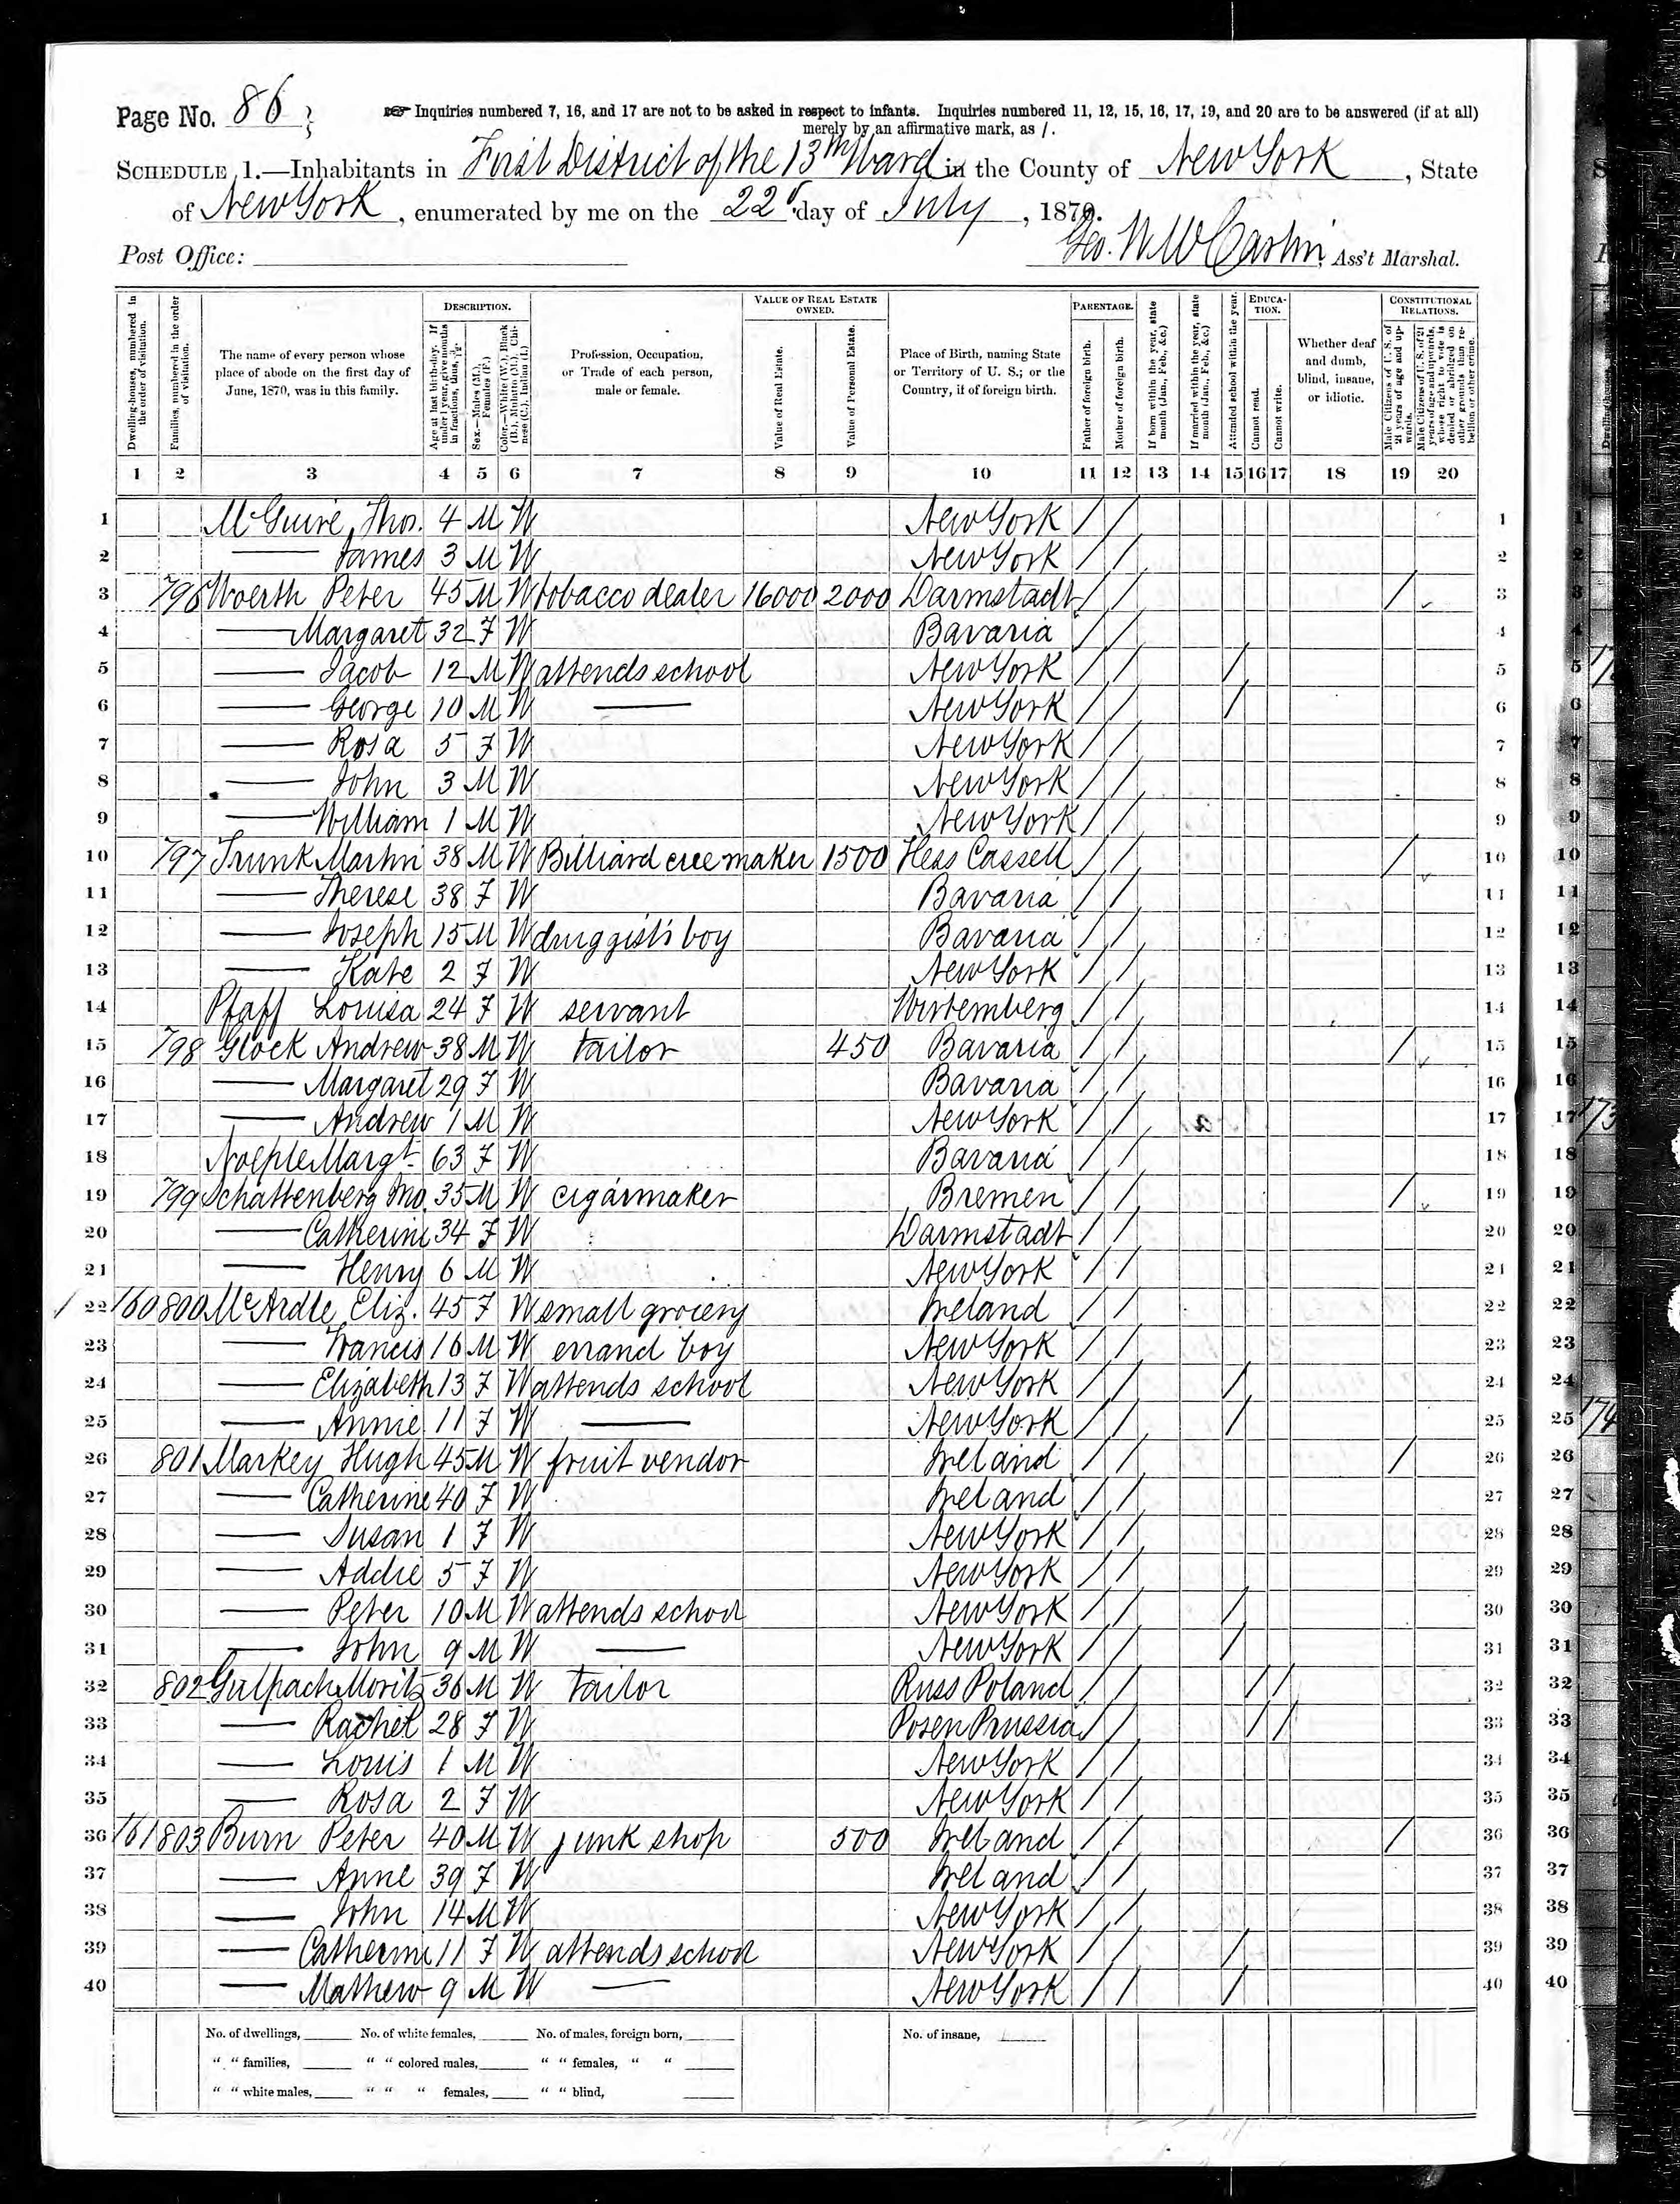 Page No. 86
☞ Inquiries numbered 7, 16, and 17 are not to be asked in respect to infants. Inquiries numbered 11, 12, 15, 16, 17, 19, and 20 are to be answered (if at all)
merely by an affirmative mark, as /.
SCHEDULE 1.—Inhabitants in First District of the 13th Ward in the County of New York, State
of New York, enumerated by me on the 22d day of July, 1870.
Post Office: Geo. W. Ass't Marshal.
Dwelling-houses, numbered in the order of visitation.
Families, numbered in the order of visitation.
The name of every person whose place of abode on the first day of June, 1870, was in this family.
DESCRIPTION.
Age at last birth-day. If under 1 year, give months in fractions, thus, 3/12
Sex.—Males (M.), Females (F.)
Color.—White (W.), Black (B.), Mulatto (M.), Chinese (C.), Indian (I.)
Profession, Occupation, or Trade of each person, male or female.
VALUE OF REAL ESTATE OWNED.
Value of Real Estate.
Value of Personal Estate.
Place of Birth, naming State or Territory of U. S.; or the Country, if of foreign birth.
PARENTAGE.
Father of foreign birth.
Mother of foreign birth.
If born within the year, state month (Jan., Feb., &c.)
If married within the year, state month (Jan., Feb., &c.)
Attended school within the year.
EDUCATION.
Cannot read.
Cannot write.
Whether deaf and dumb, blind, insane, or idiotic.
CONSTITUTIONAL RELATIONS.
Male Citizens of U. S. of 21 years of age and upwards.
Male Citizens of U. S. of 21 years of age and upwards, whose right to vote is denied or abridged on other grounds than rebellion or other crime.
1 2 3 4 5 6 7 8 9 10 11 12 13 14 15 16 17 18 19 20
1 McGuire, Thos. 4 M W New York / / 1
2 — James 3 M W New York / / 2
3 796 Woerth Peter 45 M W tobacco dealer 16000 2000 Darmstadt / / / 3
4 — Margaret 32 F W Bavaria / / 4
5 — Jacob 12 M W attends school New York / / / 5
6 — George 10 M W — New York / / / 6
7 — Rosa 5 F W New York / / 7
8 — John 3 M W New York / / 8
9 — William 1 M W New York / / 9
10 797 Trunk Martin 38 M W Billiard cue maker 1500 Hess Cassell / / / 10
11 — Therese 38 F W Bavaria / / 11
12 — Joseph 15 M W druggist's boy Bavaria / / 12
13 — Kate 2 F W New York / / 13
14 Pfaff Louisa 24 F W servant Wirtemberg / / 14
15 798 Glock Andrew 38 M W tailor 450 Bavaria / / / 15
16 — Margaret 29 F W Bavaria / / 16
17 — Andrew 1 M W New York / / 17
18 Margt. 63 F W Bavaria / / 18
19 799 Schattenberg Jno. 35 M W cigarmaker Bremen / / / 19
20 — Catherine 34 F W Darmstadt / / 20
21 — Henry 6 M W New York / / 21
22 160 800 McArdle, Eliz. 45 F W small grocery Ireland / / 22
23 — Francis 16 M W errand boy New York / / 23
24 — Elizabeth 13 F W attends school New York / / / 24
25 — Annie 11 F W — New York / / / 25
26 801 Markey Hugh 45 M W fruit vendor Ireland / / / 26
27 — Catherine 40 F W Ireland / / 27
28 — Susan 1 F W New York / / 28
29 — Addie 5 F W New York / / 29
30 — Peter 10 M W attends school New York / / / 30
31 — John 9 M W — New York / / / 31
32 802 Moritz 36 M W tailor Russ Poland / / / / 32
33 — Rachel 28 F W Posen Prussia / / / / 33
34 — Louis 1 M W New York / / 34
35 — Rosa 2 F W New York / / 35
36 161 803 Burn Peter 40 M W junk shop 500 Ireland / / / 36
37 — Anne 39 F W Ireland / / 37
38 — John 14 M W New York / / 38
39 — Catherine 11 F W attends school New York / / / 39
40 — Mathew 9 M W — New York / / / 40
No. of dwellings, No. of white females, No. of males, foreign born, No. of insane,
" " families, " " colored males, " " females, " "
" " white males, " " " females, " " blind,